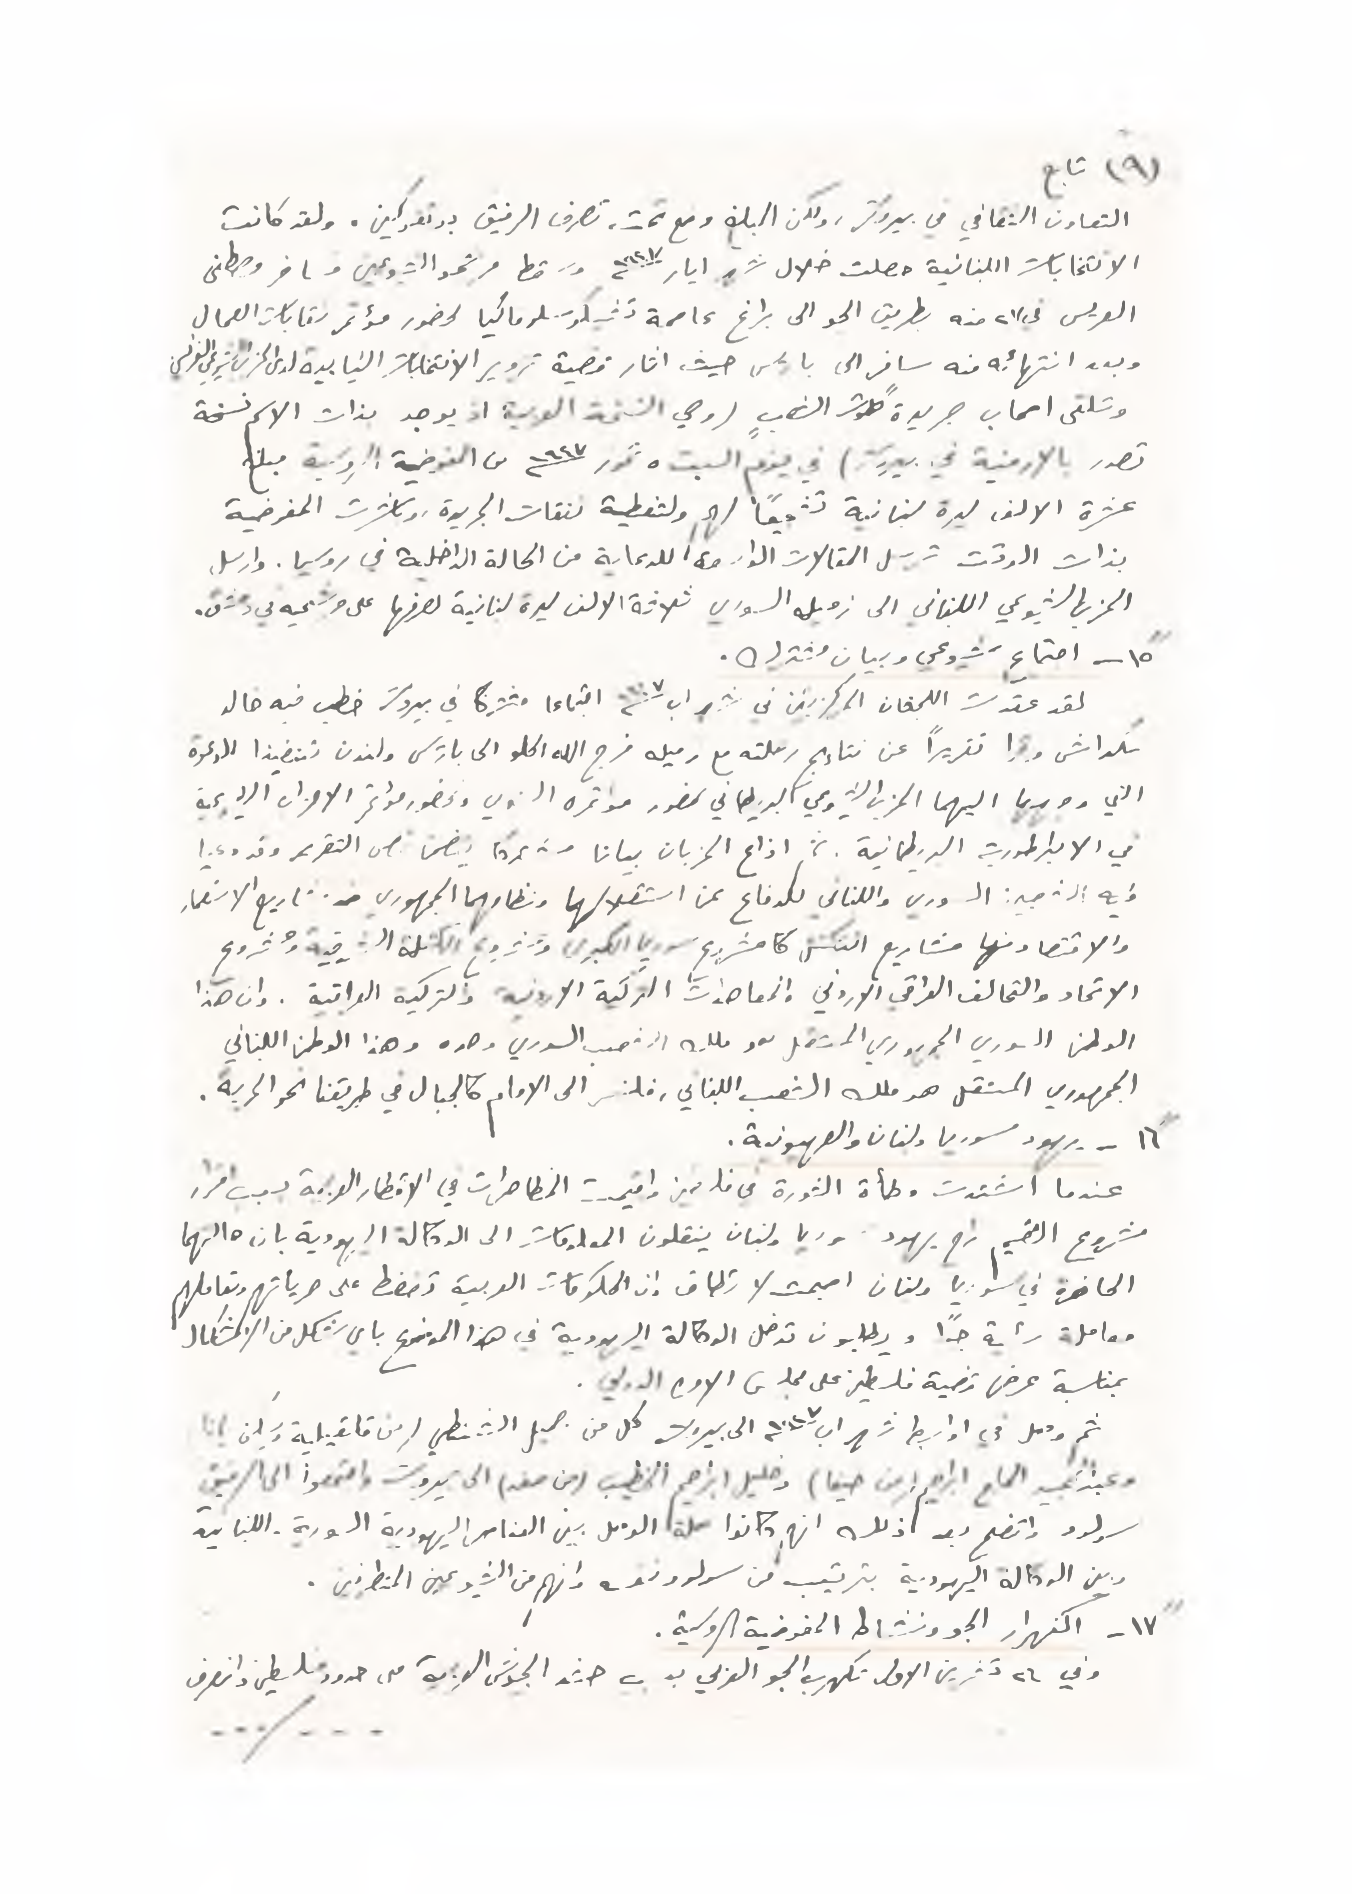 (٩) تابع
التعاون الثقافي في بيروت، ولكن المبلغ وضع تحت تصرف الرفيق ولقد كانت
الانتخابات اللبنانية حصلت خلال شهر ايار ١٩٤٧ وسقط مرشحو الشيوعيين وسافر مصطفى
العريس في منه بطريق الجو الى براغ عاصمة تشيكوسلوفاكيا لحضور مؤتمر نقابات العمال
وبعد انتهائه منه سافر الى باريس حيث اثار قضية تزوير الانتخابات النيابية لدى الحزب الشيوعي الفرنسي
وتلقى اصحاب جريدة صوت الشعب (وهي النسخة العربية اذ يوجد بذات الاسم نسخة
تصدر بالارمنية في بيروت) في يوم السبت ٥ تموز ١٩٤٧ من المفوضية الروسية مبلغ
عشرة الاف ليرة لبنانية تشجيعًا لهم ولتغطية نفقات الجريدة، وباشرت المفوضية
بذات الوقت ترسل المقالات الواسعة للدعاية عن الحالة الداخلية في روسيا. وارسل
الحزب الشيوعي اللبناني الى زميله السوري ثلاثة الاف ليرة لبنانية لصرفها على مرشحيه في دمشق.
١٥ - اجتماع شيوعي وبيان مشترك.
لقد عقدت اللجنتان المركزيتان في شهر اب ١٩٤٧ اجتماعا مشتركا في بيروت خطب فيه خالد
بكداش وقرأ تقريراً عن نتائج رحلته مع زميله فرج الله الحلو الى باريس ولندن تنفيذا للدعوة
التي وجهها اليهما الحزب الشيوعي البريطاني لحضور مؤتمره السنوي وحضور مؤتمر الاحزاب الشيوعية
في الامبراطورية البريطانية. ثم اذاع الحزبان بيانا مشتركا يتضمن نص التقرير وقد دعيا
فيه الشعبين السوري واللبناني للدفاع عن استقلالهما ونظامهما الجمهوري ضد مشاريع الاستعمار
والاقتصاد ومنها مشاريع كمشروع سوريا الكبرى ومشروع الكتلة الشرقية ومشروع
الاتحاد والتحالف العراقي الاردني والمعاهدات التركية الاردنية والتركية العراقية. وان هذا
الوطن السوري الجمهوري المستقل هو ملك الشعب السوري وحده وهذا الوطن اللبناني
الجمهوري المستقل هو ملك الشعب اللبناني، فلنسر الى الامام كالجبال في طريقنا نحو الحرية.
١٦ - يهود سوريا ولبنان والصهيونية.
عندما اشتدت وطأة الثورة في فلسطين واقيمت المظاهرات في الاقطار العربية بسبب اقرار
مشروع التقسيم راح يهود سوريا ولبنان ينقلون المعلومات الى الوكالة اليهودية بان حالتهما
الحاضرة في سوريا ولبنان اصبحت لا تطاق وان الحكومات العربية تضغط على حرياتهم وتعاملهم
معاملة سيئة جدًا ويطلبون تدخل الوكالة اليهودية في هذا الموضوع باي شكل من الاشكال
بمناسبة عرض قضية فلسطين على مجلس الامن الدولي.
ثم وصل في اواسط شهر اب ١٩٤٧ الى بيروت كل من جميل الشنطي (من قلقيلية
وعبد المجيد الحاج ابراهيم (من حيفا) وخليل ابراهيم الخطيب (من صفد) الى بيروت واجتمعوا الى الرفيق
سولود واتضح بعد ذلك انهم كانوا صلة الوصل بين العناصر اليهودية السورية - اللبنانية
وبين الوكالة اليهودية بترتيب من سولود نفسه وانهم من الشيوعيين المتطرفين.
١٧ - اكفهرار الجو ونشاط المفوضية الروسية.
وفي ٢٦ تشرين الاول تكهرب الجو العربي بسبب حشد الجيوش العربية على حدود فلسطين وانصرف
---/---